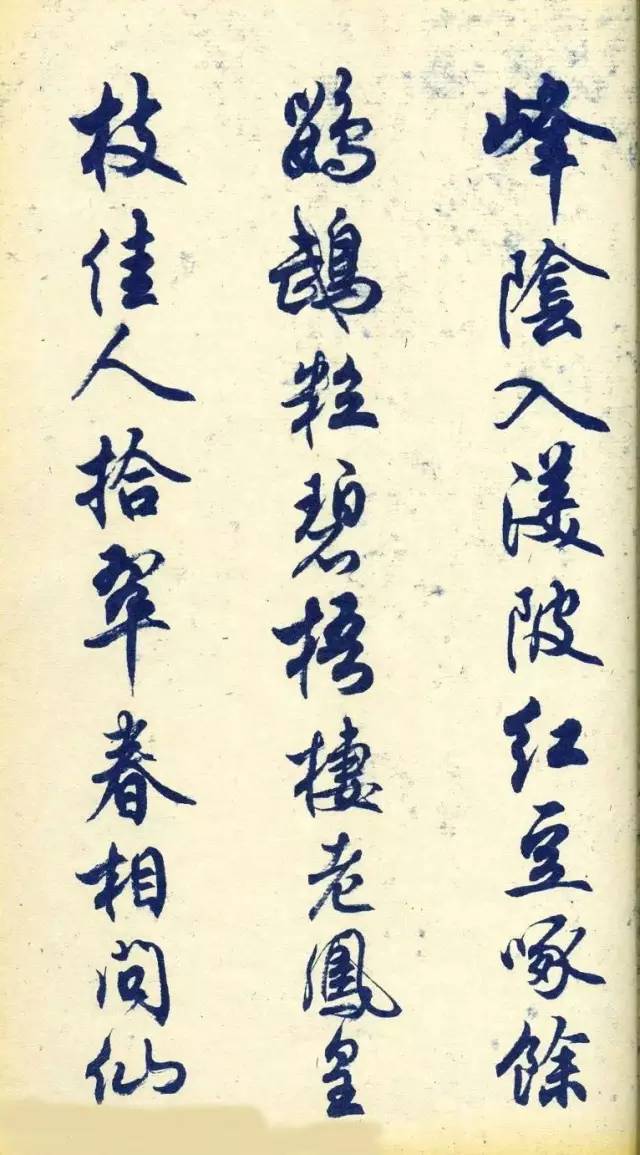 峰陰入渼陂红豆啄餘
鸚鵡粒碧梧棲老鳳皇
枝佳人拾翠春相問仙